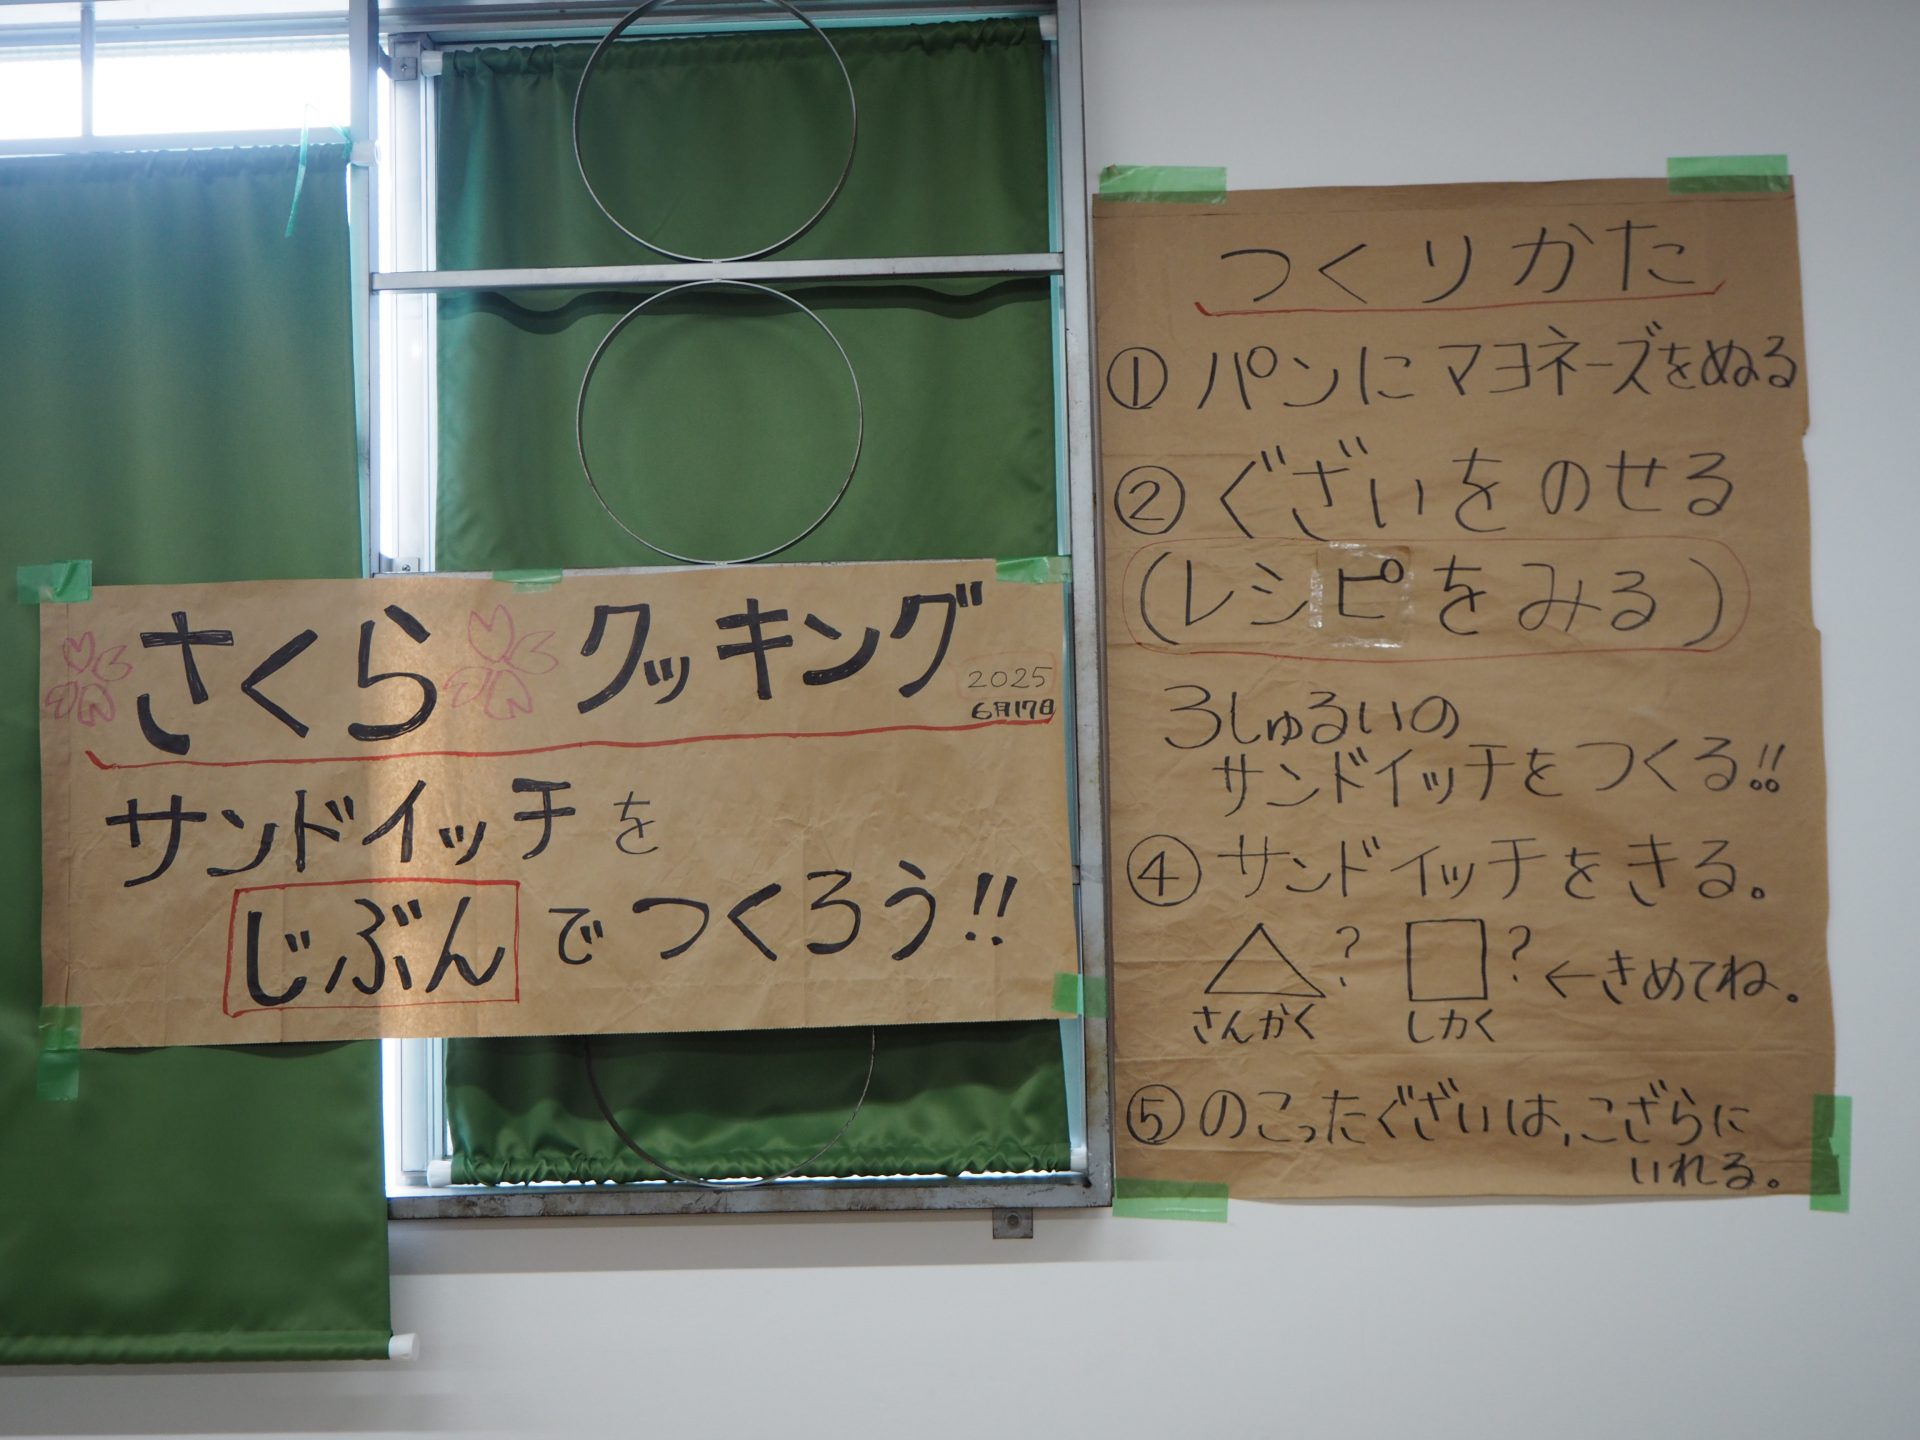 さくら クッキング
2025
6月17日
サンドイッチを
じぶんでつくろう!!
つくりかた
① パンにマヨネーズをぬる
② ぐざいをのせる
(レシピをみる)
3しゅるいの
サンドイッチをつくる!!
④ サンドイッチをきる。
? ? ←きめてね。
さんかく しかく
⑤ のこったぐざいは、こざらに
いれる。